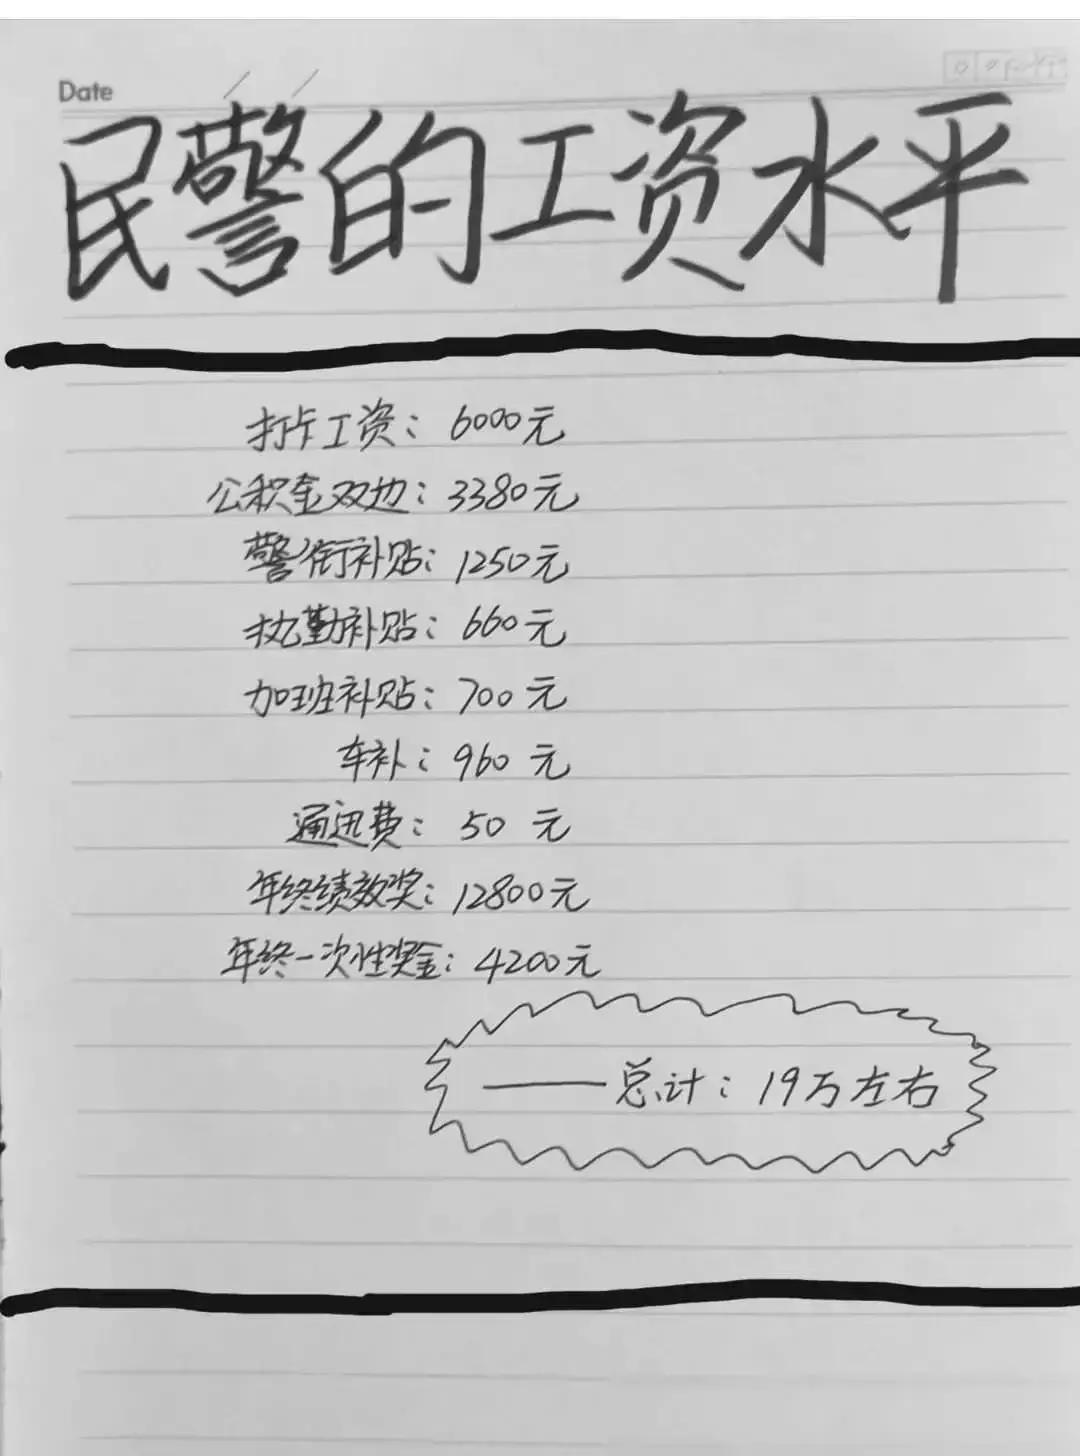 Date
民警的工资水平
打卡工资：6000元
公积金双边：3380元
警衔补贴：1250元
执勤补贴：660元
加班补贴：700元
车补：960 元
通迅费：50 元
年终绩效奖：12800元
年终一次性奖金：4200元
——总计：19万左右